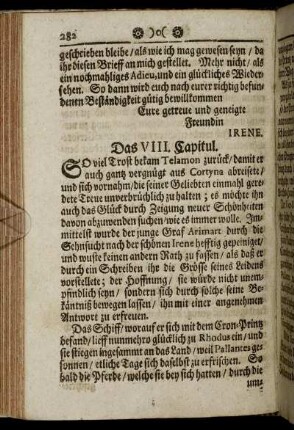 282 )o(
geschrieben bleibe / als wie ich mag gewesen seyn / da
ihr diesen Brieff an mich gestellet. Mehr nicht / als
ein nochmahliges Adieu, und ein glückliches Wieder-
sehen. So dann wird euch nach eurer richtig befun-
denen Beständigkeit gütig bewillkommen
Eure getreue und geneigte
Freundin
IRENE.
Das VIII. Capitul.
SO viel Trost bekam Telamon zurück / damit er
auch gantz vergnügt aus Cortyna abreisete /
und sich vornahm / die seiner Geliebten einmahl gere-
dete Treue unverbrüchlich zu halten ; es möchte ihn
auch das Glück durch Zeigung neuer Schönheiten
davon abzuwenden suchen / wie es immer wolle. Im-
mittelst wurde der junge Graf Arimart durch die
Sehnsucht nach der schönen Irene hefftig gepeiniget /
und wuste keinen andern Rath zu fassen / als daß er
durch ein Schreiben ihr die Grösse seines Leidens
vorstellete ; der Hoffnung / sie würde nicht unem-
pfindlich seyn / sondern sich durch solche seine Be-
käntniß bewegen lassen / ihn mit einer angenehmen
Antwort zu erfreuen.
Das Schiff / worauf er sich mit dem Cron-Printz
befand / lieff nunmehro glücklich zu Rhodus ein / und
sie stiegen ingesammt an das Land / weil Pallantes ge-
sonnen / etliche Tage sich daselbst zu erfrischen. So
bald die Pferde / welche sie bey sich hatten / durch die
um-